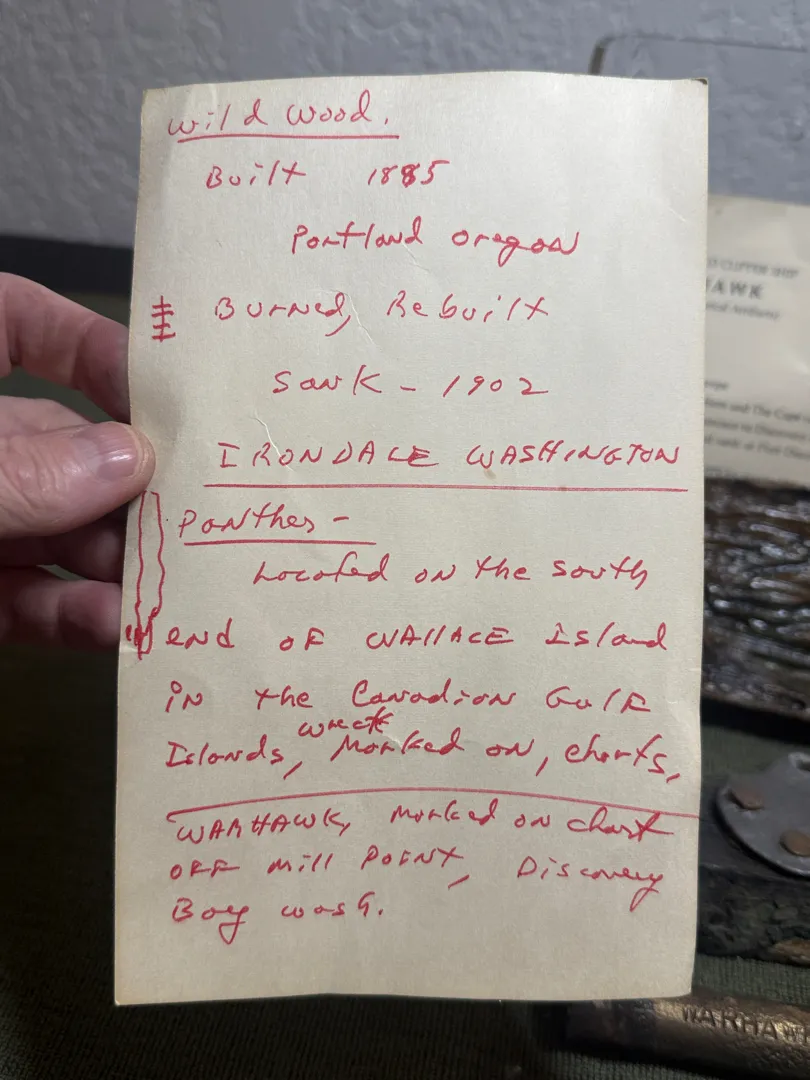 Wild Wood.
Built 1885
Portland Oregon
Burned, Rebuilt
Sank - 1902
IRONDALE WASHINGTON
Panther -
Located on the south
end of WALLACE Island
in the Canadian Gulf
wreck
Islands, Marked on, charts,
WARHAWK, Marked on chart
OFF Mill POINT, Discovery
Bay wash.
CLIPPER SHIP
AWK
and The Cape
WARHAWK